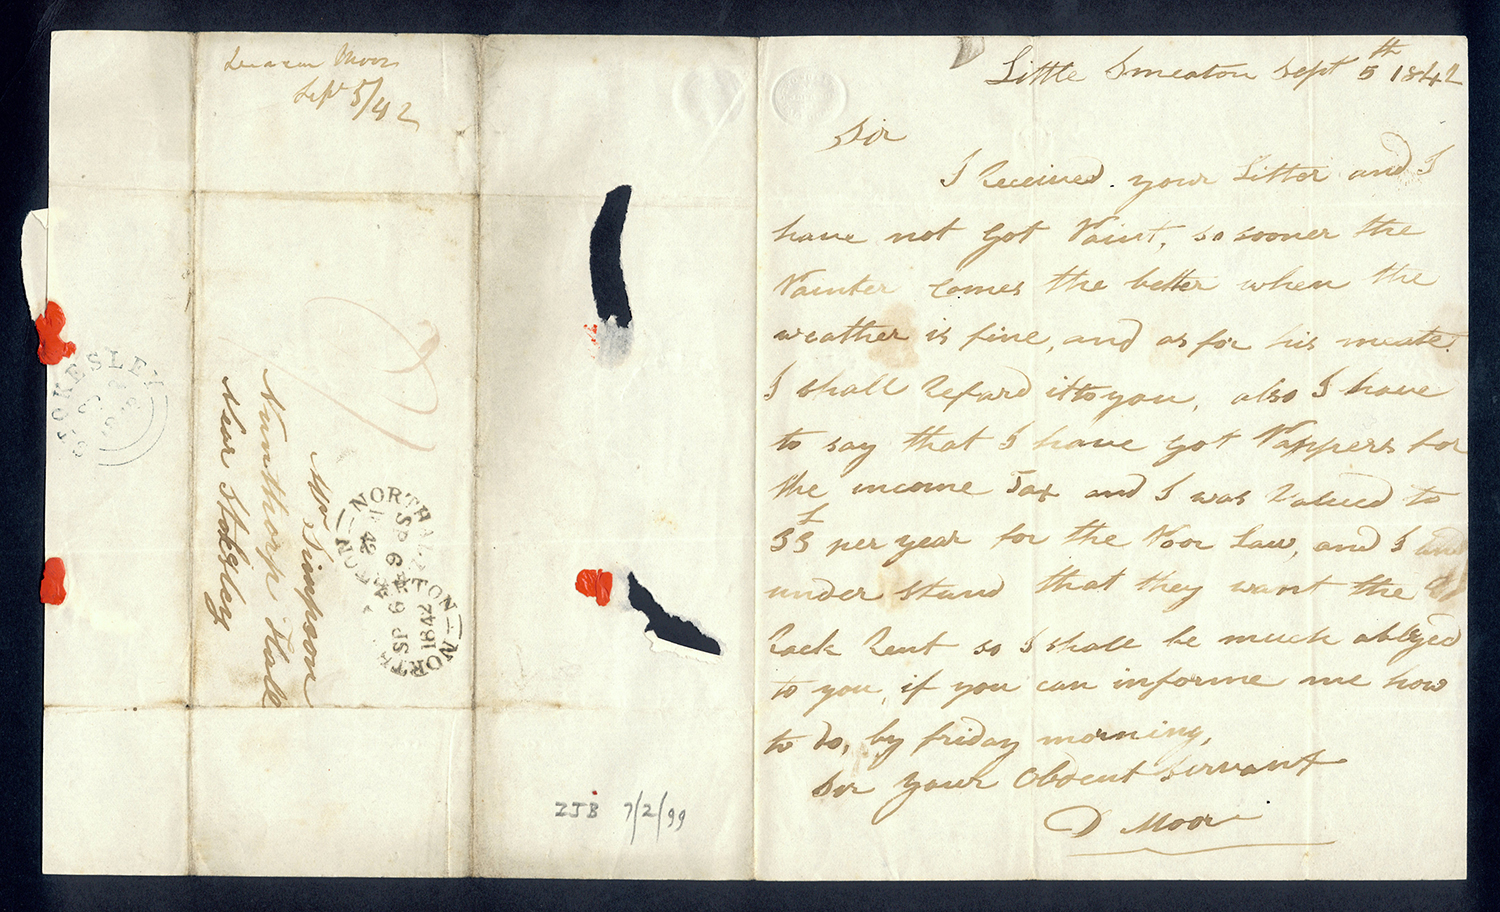 Moor
Sept 5/42
STOKESLEY
Mr Simpson
Nunthorp Hall
Near Stoksley
NORTHALLERTON
SP 6
1842
NORTHALLERTON
SP 6
1842
ZJB 7/2/99
Little Smeaton Sept 5th 1842
Sir
I Received your Litter and I
have not Got Paint, so sooner the
Painter comes the better when the
weather is fine, and as for his meate
I shall Refard it to you, also I have
to say that I have Got Pappers for
the income Tax and I was Valued to
£ 55 per year for the Poor Law, and I
under stand that they want the
Rack Rent so I shall be much oblged
to you, if you can informe me how
to do, by friday morning,
Sir your Obdent Servant
D Moor